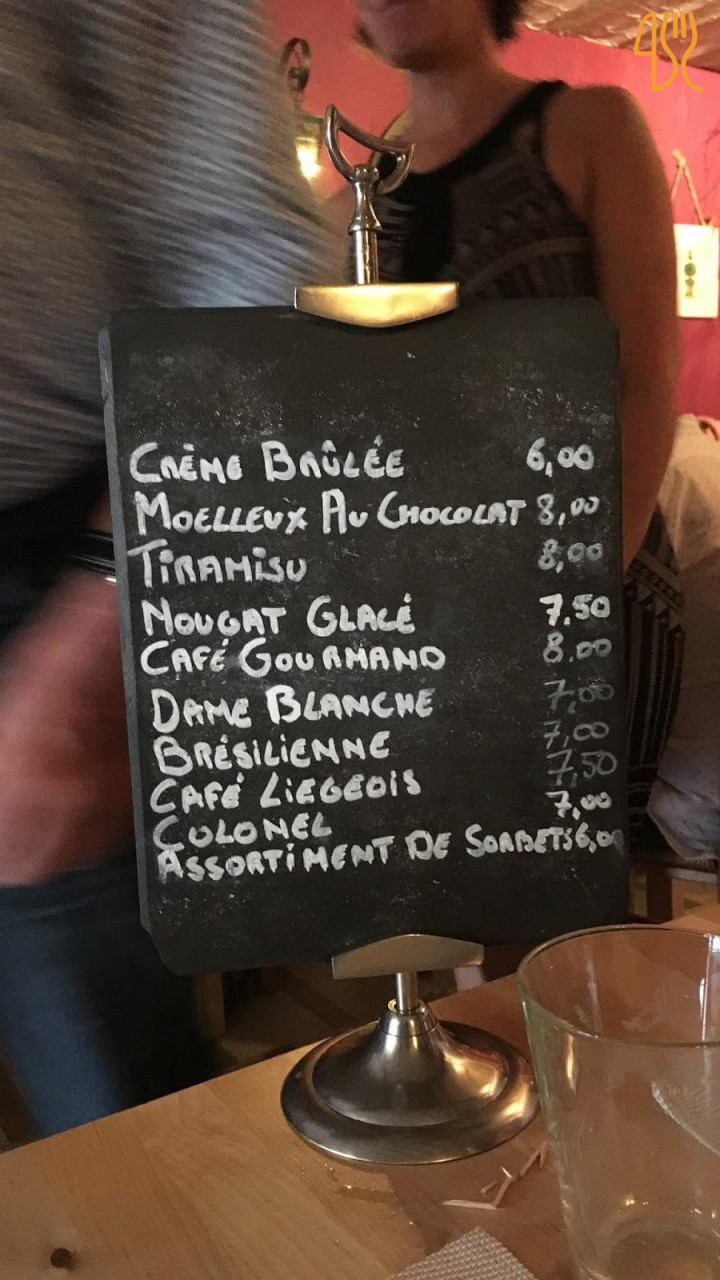 CRÈME BRÛLÉE 6,00
MOELLEUX AU CHOCOLAT 8,00
TIRAMISU 8,00
NOUGAT GLACÉ 7,50
CAFÉ GOURMAND 8.00
DAME BLANCHE 7,00
BRÉSILIENNE 7,00
CAFÉ LIEGEOIS 7,50
COLONEL 7,00
ASSORTIMENT DE SORBETS 6,00